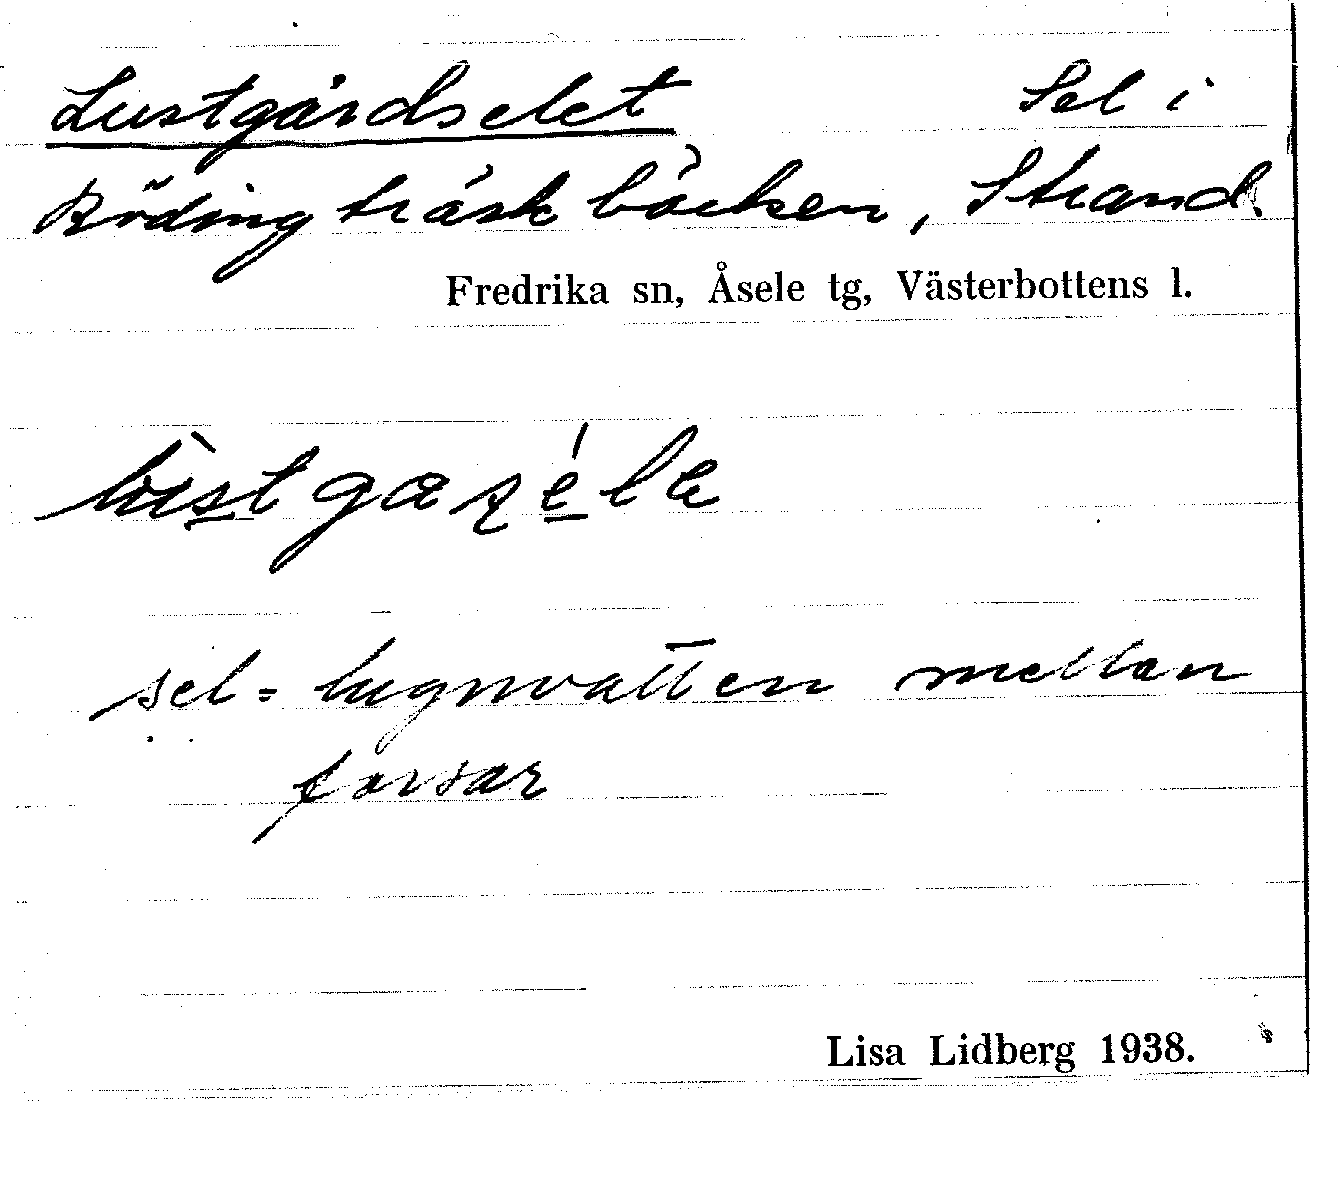 Lustgårdselet Sel i
Rödingträskbäcken, Strand.
Fredrika sn, Åsele tg, Västerbottens l.
sel = lugnvatten mellan
forsar
Lisa Lidberg 1938.